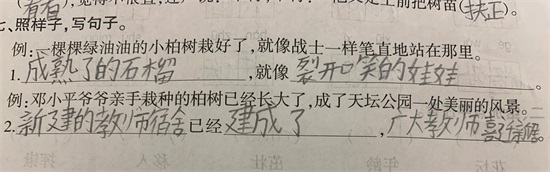 (看看),觉得不很直,
又走上前把树苗(扶正)。
七、照样子,写句子。
例:一棵棵绿油油的小柏树栽好了,就像战士一样笔直地站在那里。
1.成熟了的石榴,就像裂开口笑的娃娃。
例:邓小平爷爷亲手栽种的柏树已经长大了,成了天坛公园一处美丽的风景。
2.新建的教师宿舍已经建成了,广大教师喜迁徐居。